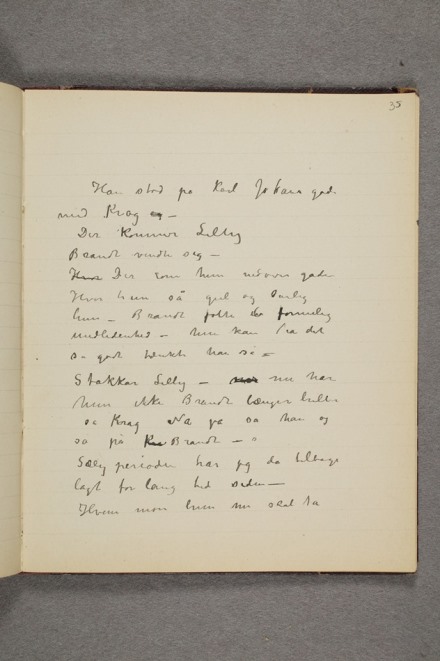 35
Han stod på Karl Johans gade
med Krag –
Der kommer Lilly
Brandt vendte sig –
Der kom hun nedover gaden
Hvor hun så gul og dårlig
hun – Brandt følte formelig
– hun kan ha det
så godt tænkte han så –
Stakkar Lilly – nu har
hun ikke Brandt længer heller
sa Krag på sa han og
så på Brandt –
perioden har jeg da tilbage
lagt for lang tid siden –
Hvem mon hun nu skal ta